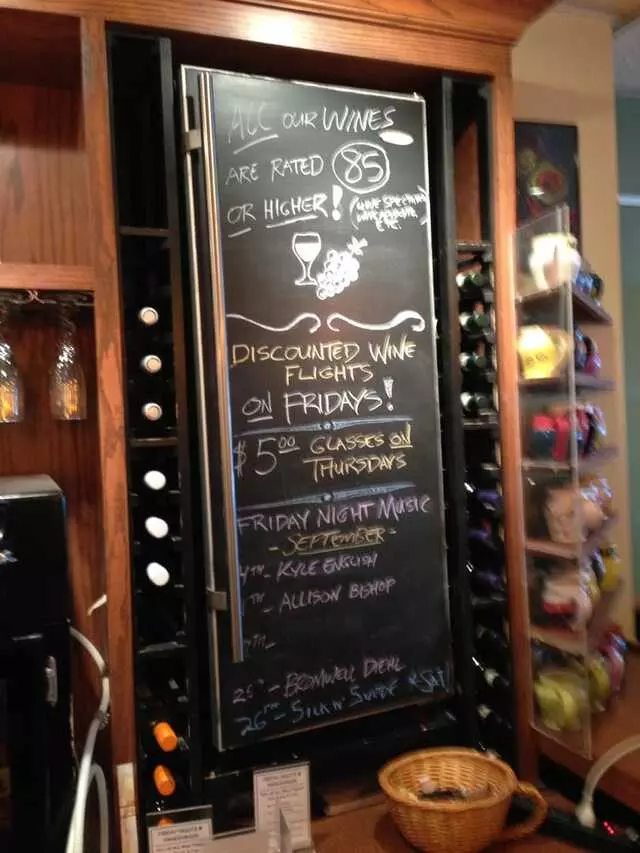 ALL OUR WINES
ARE RATED 85
OR HIGHER! (WINE SPECTATOR
ETC.
DISCOUNTED WINE
FLIGHTS
ON FRIDAYS!
$5.00 GLASSES ON
THURSDAYS
FRIDAY NIGHT MUSIC
- SEPTEMBER -
4TH - KYLE ENGLISH
TH - ALLISON BISHOP
TH -
25TH - BROMWELL DIEHL
26TH - SILK N' SUEDE *SAT